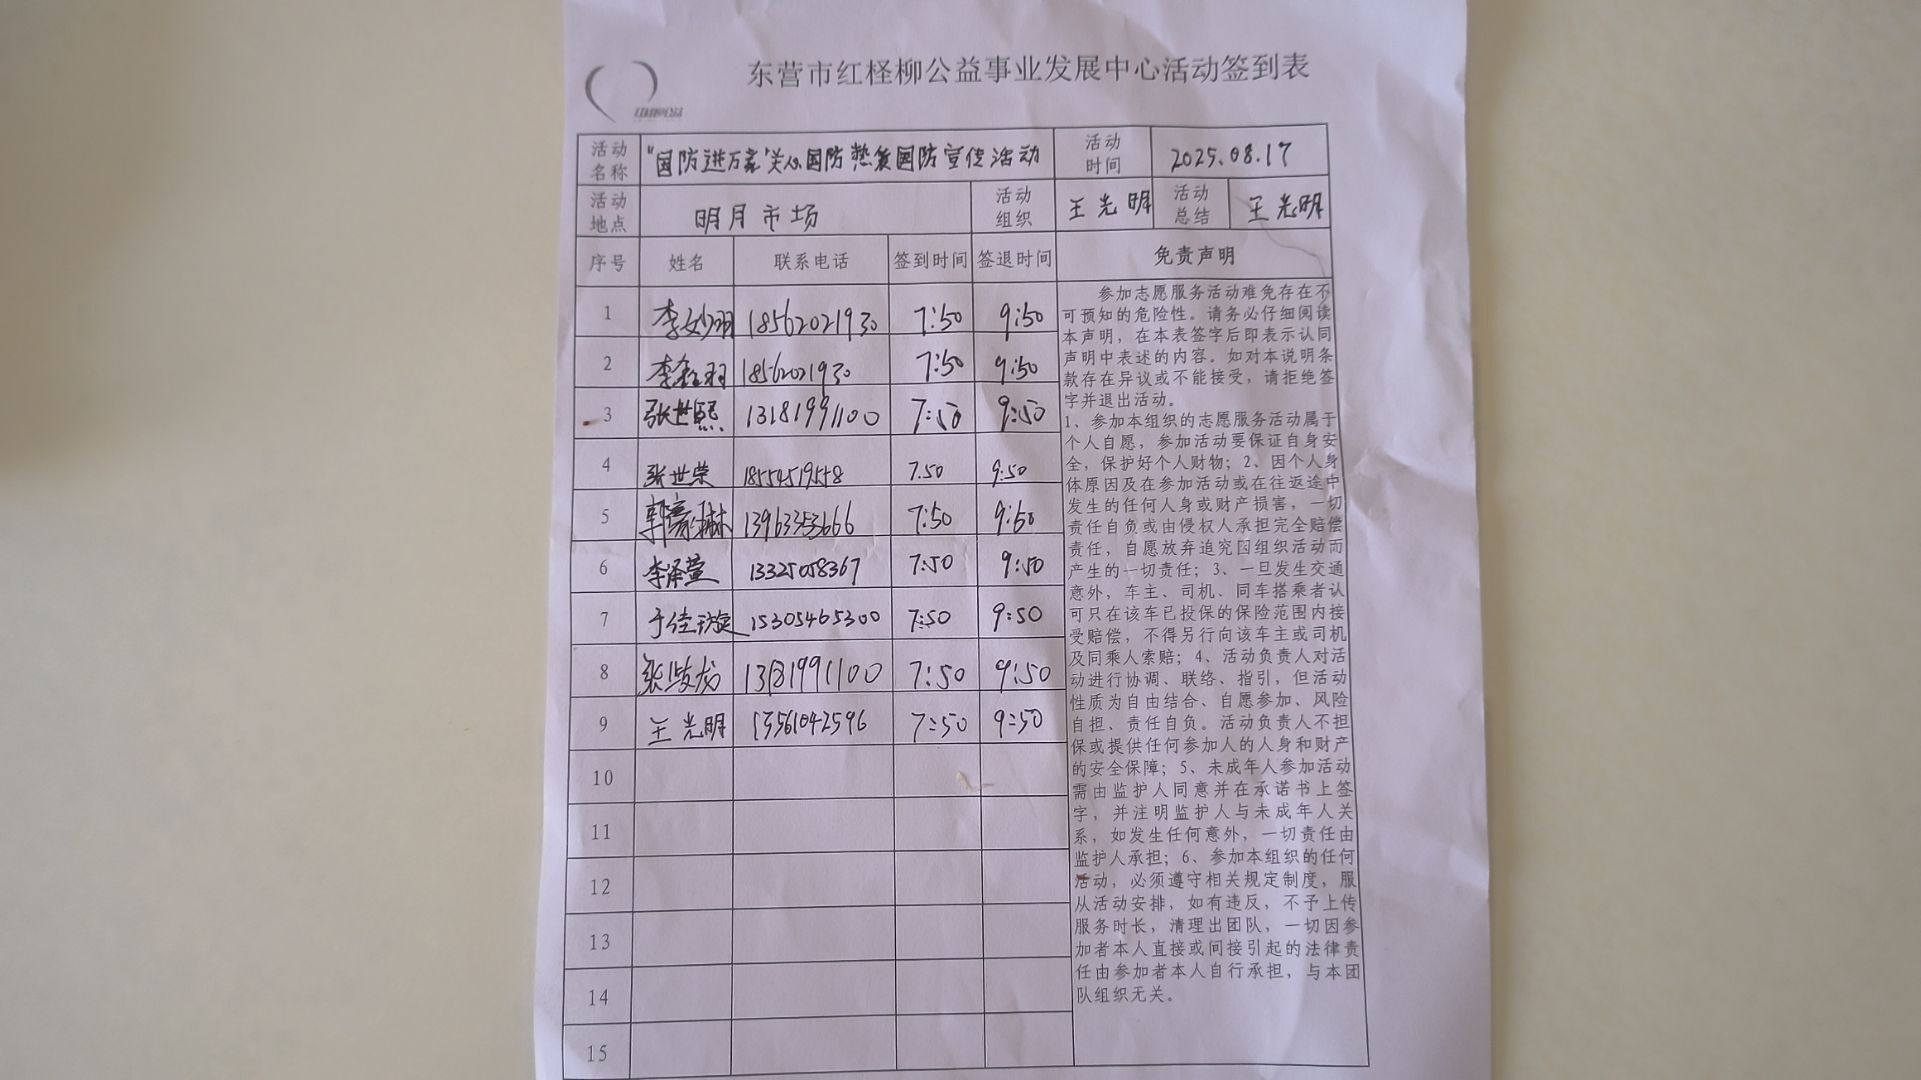 东营市红柽柳公益事业发展中心活动签到表
活动名称 "国防进万家"关心国防 热爱国防宣传活动 活动时间 2025.08.17
活动地点 明月市场 活动组织 王光明 活动总结 王光明
序号 姓名 联系电话 签到时间 签退时间 免责声明
1 李妙羽 18562021930 7:50 9:50
2 李 羽 18562021930 7:50 9:50
3 张世熙 13181991100 7:50 9:50
4 张世荣 18554519558 7.50 9:50
5 郭 琳 13963353666 7:50 9:50
6 李泽萱 13325058367 7:50 9:50
7 于佳璇 15305465300 7:50 9:50
8 张 龙 13181991100 7:50 9:50
9 王光明 13561042596 7:50 9:50
10
11
12
13
14
15
参加志愿服务活动难免存在不
可预知的危险性。请务必仔细阅读
本声明，在本表签字后即表示认同
声明中表述的内容。如对本说明条
款存在异议或不能接受，请拒绝签
字并退出活动。
1、参加本组织的志愿服务活动属于
个人自愿，参加活动要保证自身安
全，保护好个人财物；2、因个人身
体原因及在参加活动或在往返途中
发生的任何人身或财产损害，一切
责任自负或由侵权人承担完全赔偿
责任，自愿放弃追究因组织活动而
产生的一切责任；3、一旦发生交通
意外，车主、司机、同车搭乘者认
可只在该车已投保的保险范围内接
受赔偿，不得另行向该车主或司机
及同乘人索赔；4、活动负责人对活
动进行协调、联络、指引，但活动
性质为自由结合、自愿参加、风险
自担、责任自负。活动负责人不担
保或提供任何参加人的人身和财产
的安全保障；5、未成年人参加活动
需由监护人同意并在承诺书上签
字，并注明监护人与未成年人关
系，如发生任何意外，一切责任由
监护人承担；6、参加本组织的任何
活动，必须遵守相关规定制度，服
从活动安排，如有违反，不予上传
服务时长，清理出团队，一切因参
加者本人直接或间接引起的法律责
任由参加者本人自行承担，与本团
队组织无关。